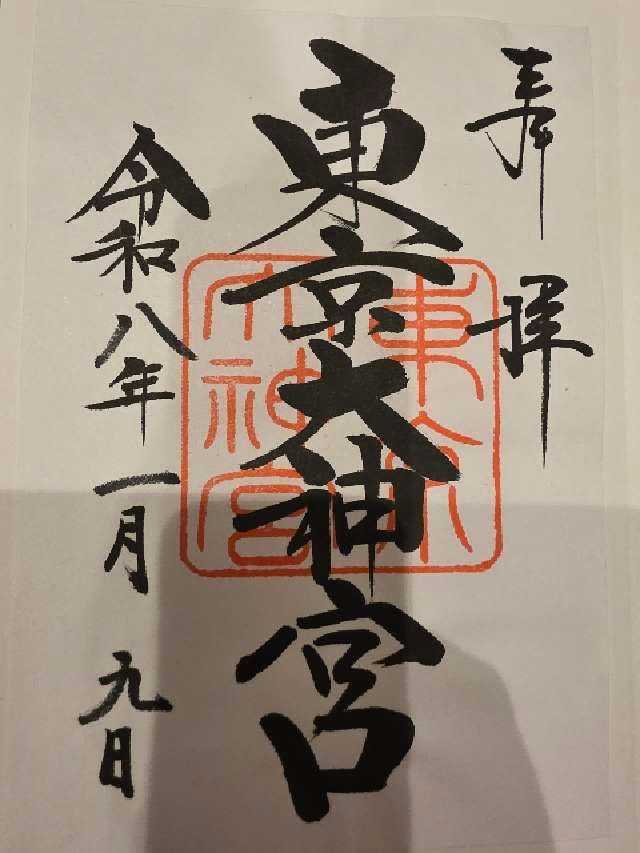 奉拝
東京大神宮
東京
大神宮
令和八年一月九日